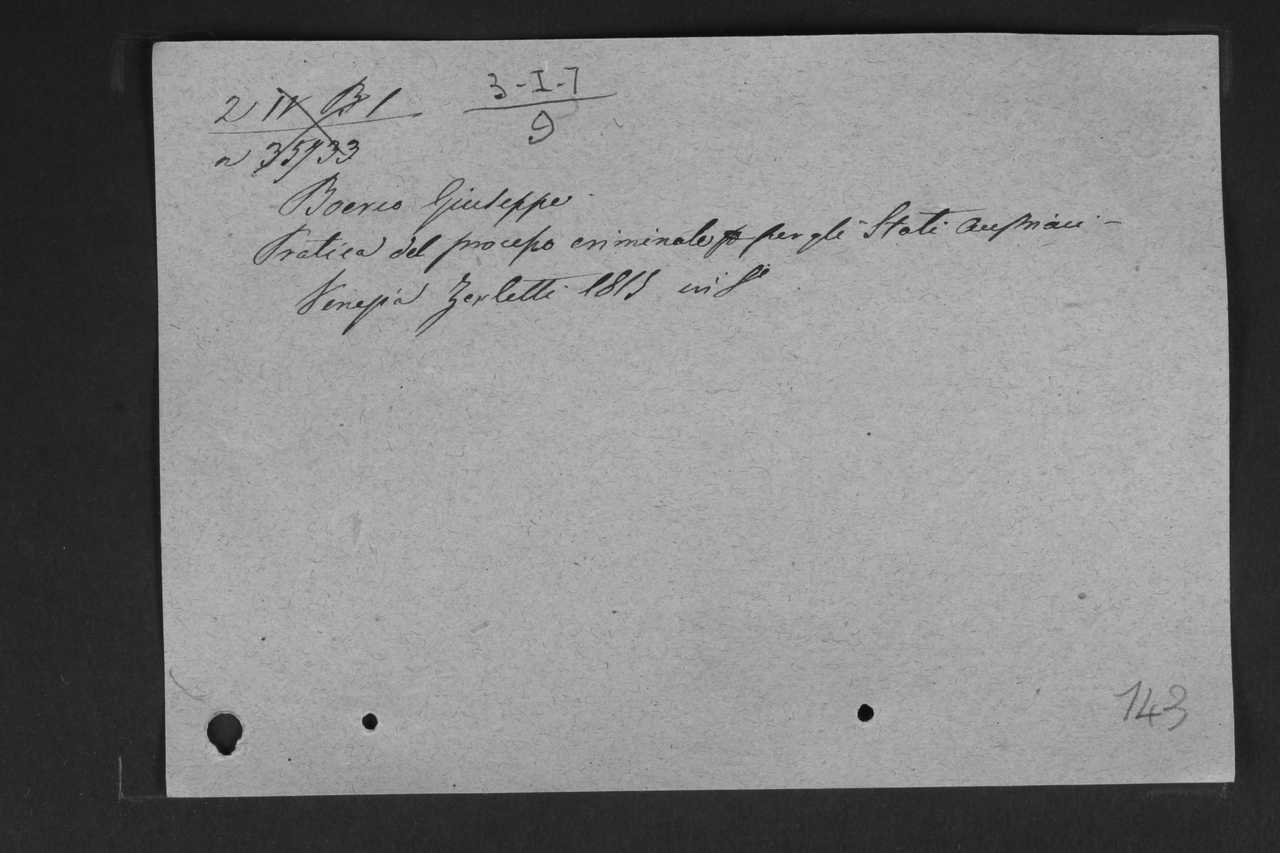 2 IV B 1
3-I-7
9
n 35733
Boerio Giuseppe
Pratica del processo criminale per gli Stati austriaci -
Venezia Zerletti 1815 in 8°
143